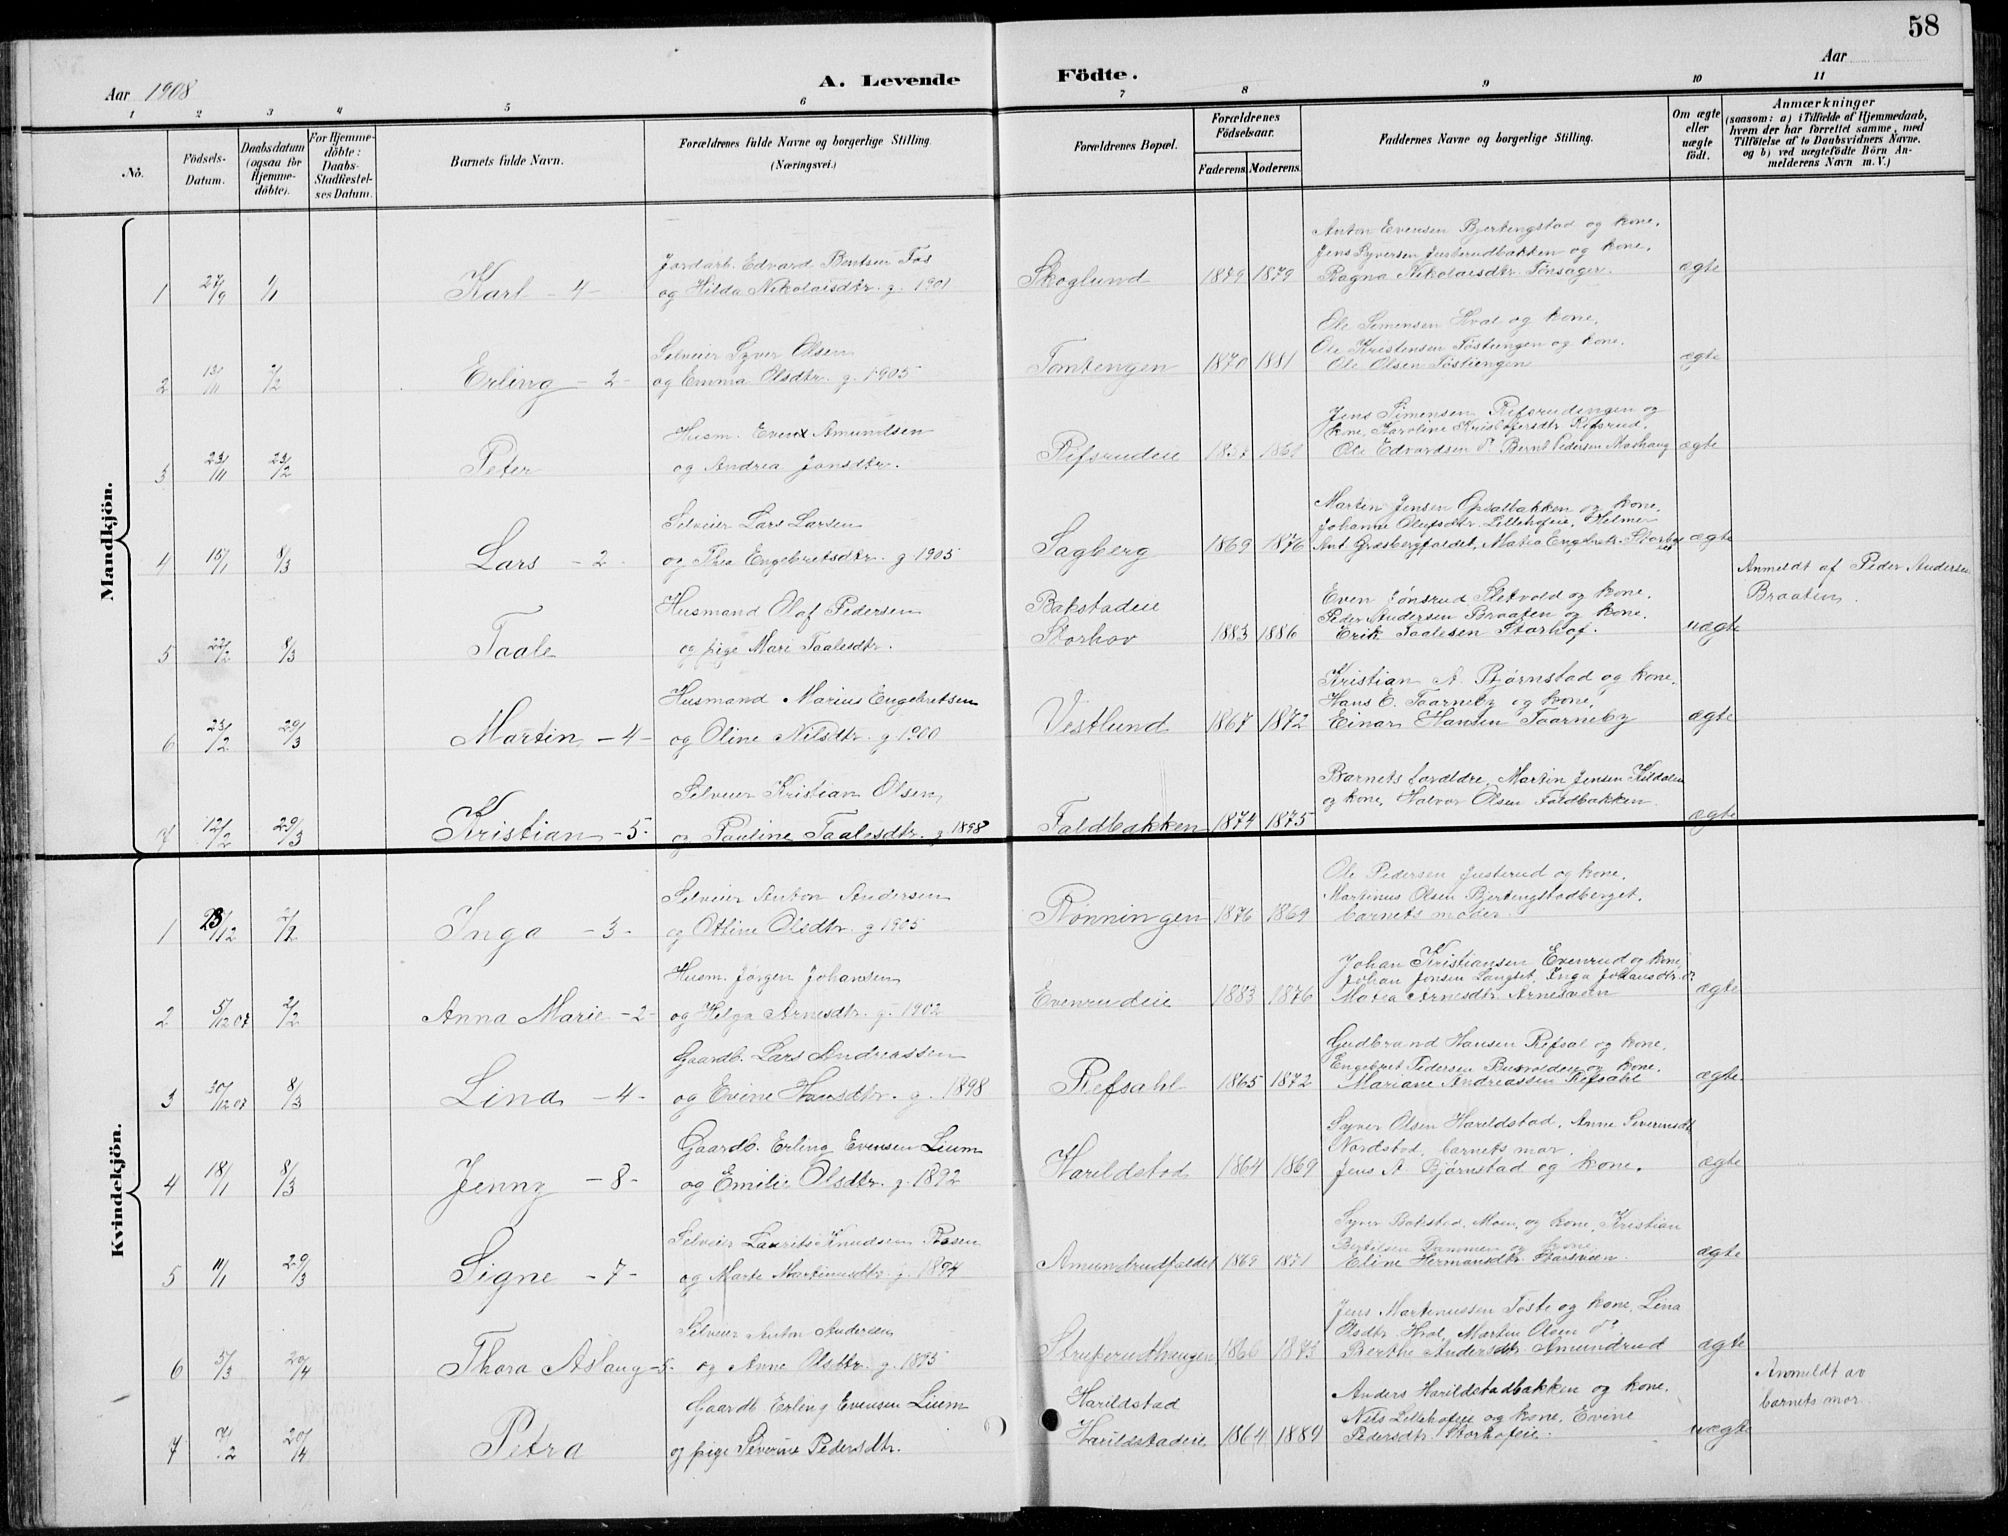 58
Aar 1908
A. Levende
Födte.
Aar
1 2 3 4 5 6 7 8 9 10 11
No.
Födsels-Datum.
Daabsdatum (ogsaa för Hjemme-döbte).
For Hjemme-döbte: Daabs-Stadfæstel-ses Datum.
Barnets fulde Navn.
Forældrenes fulde Navne og borgerlige Stilling. (Næringsvei.)
Forældrenes Bopæl.
Forældrenes Födselsaar.
Faderens. Moderens.
Faddernes Navne og borgerlige Stilling.
Om ægte eller uægte födt.
Anmærkninger
(saasom: a) i Tilfælde af Hjemmedaab, hvem der har forrettet samme, med Tilföielse af to Daabsvidners Navne. og b) ved uægtefödte Börn An-melderens Navn m. V.)
Mandkjön.
1 27/9 1/1 Karl - 4 -
Jordarb. Edvard Bentsen Fos
og Hilda Nikolaisdtr. g. 1901
Skoglund 1879 1879
Anton Evensen Bjertengstad og kone.
Jens Syversen Justerudbakken og kone.
Ragna Nikolaisdtr. Tonsager. ægte
2 13/11 2/2 Erling - 2 -
Selveier Syver Olsen
og Emma Olsdtr. g. 1905
Tomtengen 1870 1881
Ole Simensen Hval og kone.
Ole Kristensen Töstiengen og kone.
Ole Olsen Töstiengen ægte
3 23/11 23/2 Peter
Husm. Even Amundsen
og Andrea Jonsdtr.
Refsrudeie 1857
Jens Simensen Refsrudengen og
kone, Karoline Kristofersdtr Refsrud.
Ole Edvardsen do. Bernt Pedersen ægte
4 15/1 8/3 Lars - 2 -
Selveier Lars Larsen
og Thea Engebretsdtr. g 1905
Sagberg 1869 1876
Martin Jensen Opsalbakken og kone.
Johanne Olufsdtr. Lillehofeie, Helmer
Ant. Græsbergfaldet, Matea Engebretsdtr. ægte
5 22/2 8/3 Taale
Husmand Olaf Pedersen
og pige Mari Taalesdtr.
Bakstadeie
Storhov 1883 1886
Even Jönsrud Sletvold og kone.
Peder Andersen Braaten og kone.
Erik Taalesen Storhof. uægte
Anmeldt af Peder Andersen
Braaten.
6 23/2 29/3 Martin - 4 -
Husmand Marius Engebretsen
og Oline Nilsdtr. g 1900
Vestlund 1867 1872
Kristian A. Bjørnstad og kone.
Hans E. Taarneby og kone,
Einar Hansen Taarneby ægte
7 12/2 29/3 Kristian - 5 -
Selveier Kristian Olsen
og Pauline Taalesdtr. g 1898
Faldbakken 1874 1875
Barnets forældre, Martin Jensen Kildalen
og kone, Halvor Olsen Faldbakken. ægte
Kvindekjön.
1 23/12 2/2 Inga - 3 -
Selveier Anton Andersen
og Otline Olsdtr. g 1905
Rønningen 1876 1869
Ole Pedersen Justerud og kone.
Martinus Olsen Bjertengstadberget.
barnets moder.
2 5/12 07 2/2 Anna Marie - 2 -
Husm. Jørgen Johansen
og Helga Arnesdtr. g. 1902
Evenrudeie 1883 1876
Johan Kristiansen Evenrud og kone
Johan Jensen Langset, Inga Johansdtr. do.
Matea Arnesdtr. Arnesveen ægte
3 30/12 07 8/3 Lina - 4 -
Gaardb. Lars Andreassen
og Evine Hansdtr. g. 1898
Refsahl 1865 1872
Gudbrand Hansen Refsal og kone.
Engebret Pedersen Busvolden og kone.
Mariane Andreassen Refsahl ægte.
4 18/1 8/3 Jenny - 8 -
Gaardb. Erling Evensen Lium
og Emilie Olsdtr. g. 1892
Harildstad 1864 1869
Syver Olsen Harildstad, Anne Severinsdt
Nordstad, barnets mor.
Jens A. Bjørnstad og kone. ægte
5 11/1 29/3 Signe - 7 -
Selveier Laurits Knudsen Rosen
og Marte Martinusdtr. g. 1894
Amundrudfaldet 1869 1871
Syver Bakstad, Moen, og kone, Kristian
Bertilsen Dammen og kone
Eline Hermansdtr. ægte
6 5/3 20/4 Thora Aslaug - 5 -
Selveier Anton Andersen
og Anne Olsdtr. g. 1895
Struperudhaugen 1866 1873
Jens Martinussen Töste og kone, Lina
Olsdtr. Hval, Martin Olsen do.
Berthe Andersdtr. Amundrud ægte
7 7/2 20/4 Petra
Gaardb. Erling Evensen Lium
og pige Severine Pedersdtr.
Harildstad
Harildstadeie 1864 1889
Anders Harildstadbakken og kone.
Nils Lillehofeie og kone, Evine
Pedersdtr. Storhofeie. uægte
Anmeldt av
barnets mor